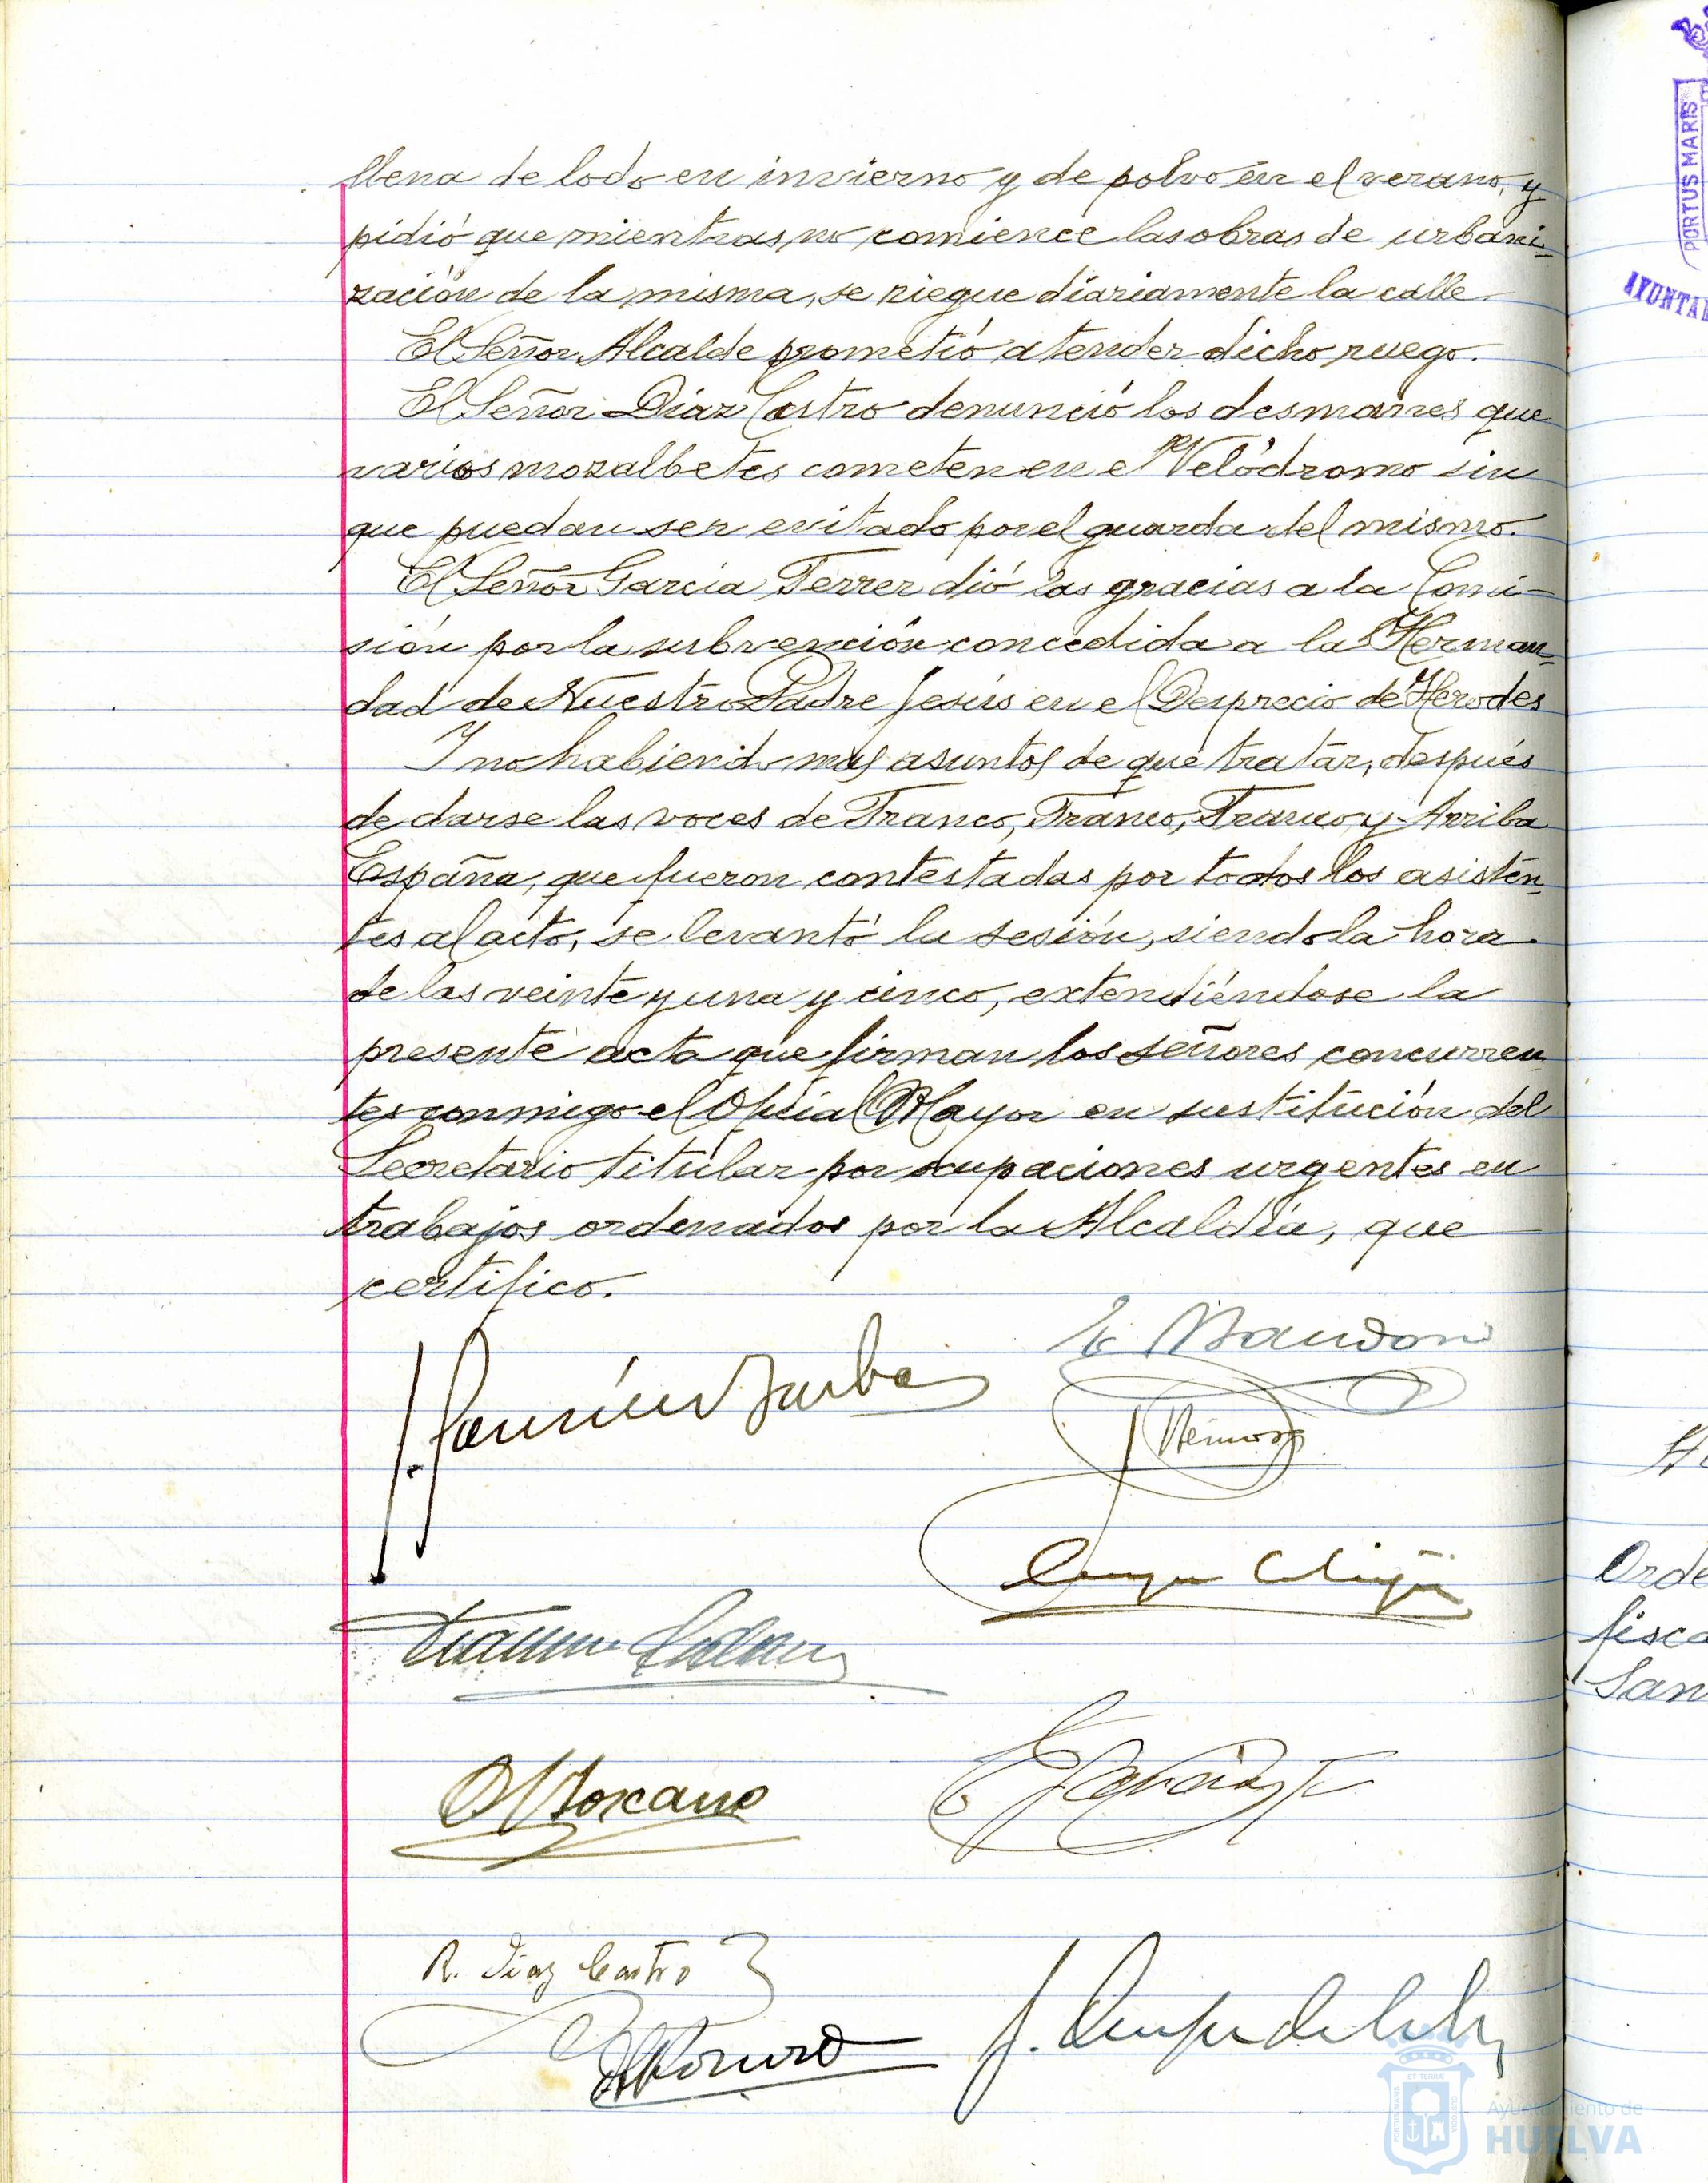 llena de lodo en invierno y de polvo en el verano, y
pidió que mientras, no comience las obras de urbani-
zación de la misma, se riegue diariamente la calle.
El Señor Alcalde prometió atender dicho ruego.
El Señor Díaz Castro denunció los desmanes que
varios mozalbetes cometen en el Velódromo sin
que puedan ser evitado por el guarda del mismo.
El Señor García Ferrer dió las gracias a la Comi-
sión por la subvención concedida a la Herman-
dad de Nuestro Padre Jesús en el Desprecio de Herodes
Y no habiendo mas asuntos de que tratar, después
de darse las voces de Franco, Franco, Franco, y Arriba
España, que fueron contestadas por todos los asisten-
tes al acto, se levantó la sesión, siendo la hora
de las veinte y una y cinco, extendiéndose la
presente acta que firman los señores concurren-
tes conmigo el Oficial Mayor en sustitución del
Secretario titular por ocupaciones urgentes en
trabajos ordenados por la Alcaldía, que
certifico.
R. Díaz Castro
PORTUS MARIS
AYUNTA
Orde
fisca
San
Ayuntamiento de
HUELVA